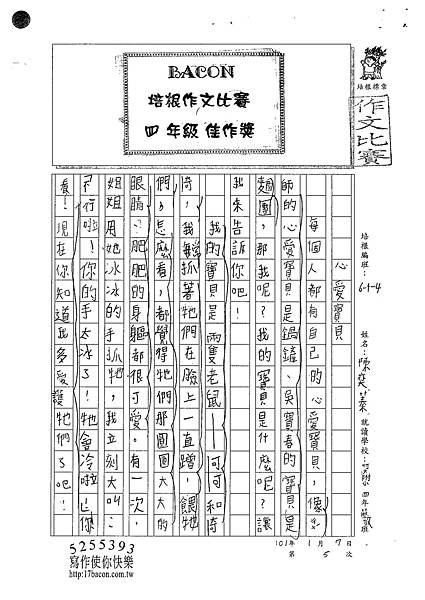 BACON
培根作文比賽
四年級 佳作獎
培根標章
作文比賽
培根編班：6-1-4
姓名：陳
就讀學校：
四年
心愛寶貝
每個人都有自己的心愛寶貝，像
師的心愛寶貝是鍋鏟、吳寶春的寶貝是
麵團，那我呢？我的寶貝是什麼呢？讓
我來告訴你吧！
我的寶貝是兩隻老鼠——可可和奇
奇，我抓著牠們在臉上一直蹭，餵牠
們，怎麼看，都覺得牠們那圓圓大大的
眼睛、肥肥的身軀都很可愛。有一次，
姐姐用她冰冰的手抓牠，我立刻大叫：
「不行啦！你的手太冰了！牠會冷啦！」你
看！現在你知道我多愛護牠們了吧！
101年1月7日
第5次
5255393
寫作使你快樂
http://17bacon.com.tw